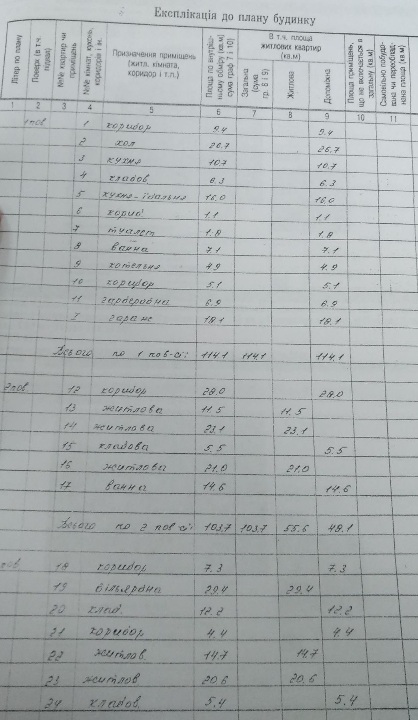 Експлікація до плану будинку
Літер по плану | Поверх (в т.ч. підвал) | №№ квартир чи приміщень | №№ кімнат, кухонь, коридорів і ін. | Призначення приміщень (житл. кімната, коридор і т.п.) | Площа по внутрішньому обміру (кв.м) сума граф 7 і 10) | В т.ч. площа житлових квартир (кв.м) | Загальна (сума гр. 8 і 9) | Житлова | Допоміжна | Площа приміщень, що не включається в загальну (кв.м)
1 2 3 4 5 6 7 8 9 10 11
1 пов 1 коридор 9.4 9.4
2 хол 26.7 26.7
3 кухня 10.7 10.7
4 кладов 6.3 6.3
5 кухня-їдальня 16.0 16.0
6 корид 1.1 1.1
7 туалет 1.8 1.8
8 ванна 7.1 7.1
9 котельня 4.9 4.9
10 коридор 5.1 5.1
11 гардеробна 6.9 6.9
I гараж 18.1 18.1
Всього по 1 пов-сі: 114.1 114.1 114.1
2 пов 12 коридор 28.0 28.0
13 житлова 11.5 11.5
14 житлова 23.1 23.1
15 кладова 5.5 5.5
16 житлова 21.0 21.0
17 ванна 14.6 14.6
Всього по 2 пов-сі: 103.7 103.7 55.6 48.1
пов 18 коридор 7.3 7.3
19 більярдна 29.4 29.4
20 клад. 12.2 12.2
21 коридор 4.4 4.4
22 житлов. 14.7 14.7
23 житлов 20.6 20.6
24 кладов. 5.4 5.4